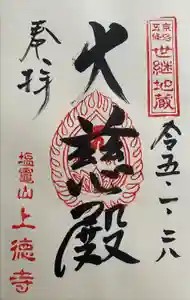 京都五條
世継地蔵
令五・一・二八
大慈殿
奉拝
塩竈山上徳寺